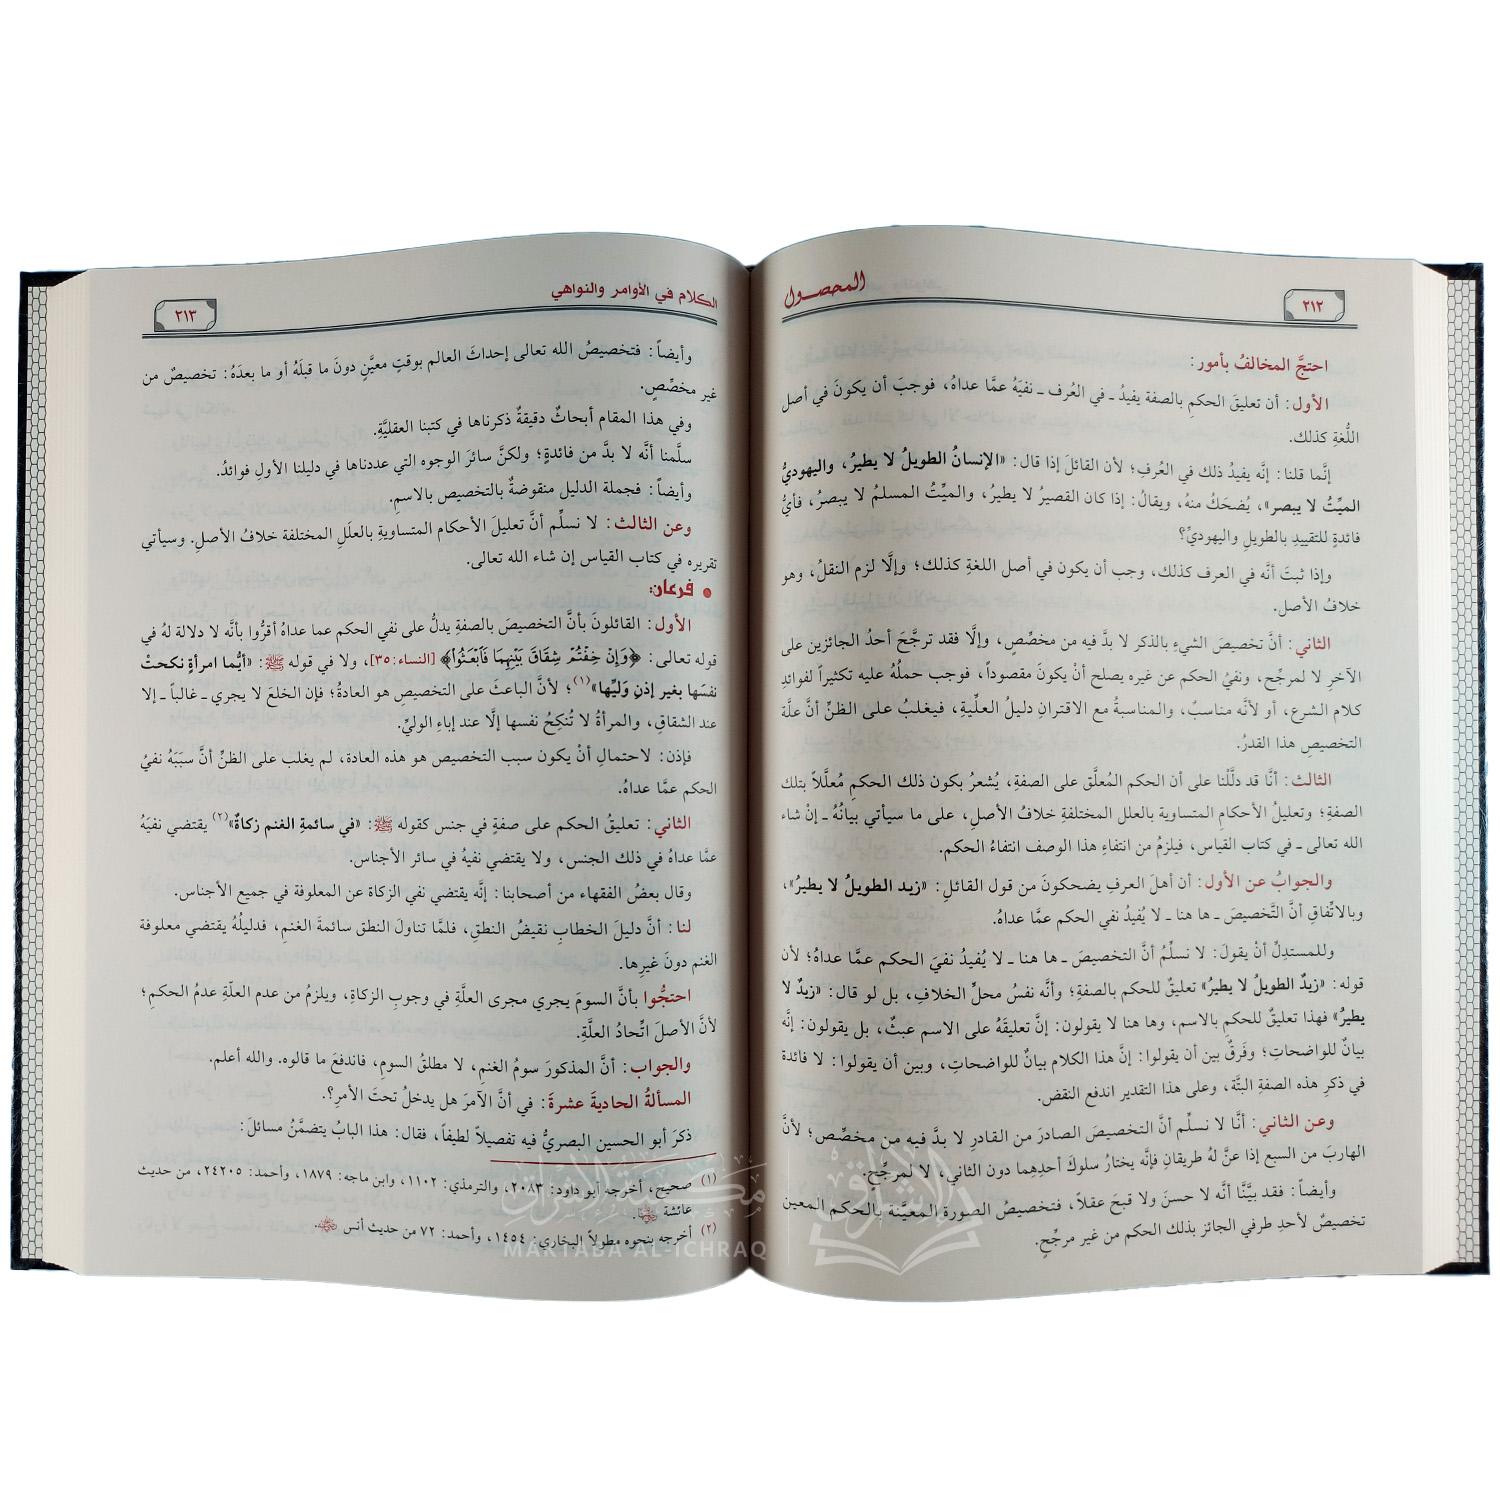 المحصول
٢١٢
احتجَّ المخالفُ بأمور:
الأول: أن تعليقَ الحكم بالصفة يفيدُ ـ في العُرف ـ نفيَهُ عمَّا عداهُ، فوجبَ أن يكونَ في أصل
اللُّغةِ كذلك.
إنَّما قلنا: إنَّه يفيدُ ذلك في العُرفِ؛ لأن القائلَ إذا قال: «الإنسانُ الطويلُ لا يطيرُ، واليهوديُّ
الميِّتُ لا يبصر»، يُضحَكُ منهُ، ويقالُ: إذا كان القصيرُ لا يطيرُ، والميِّتُ المسلمُ لا يبصرُ، فأيُّ
فائدةٍ للتقييدِ بالطويلِ واليهوديِّ؟
وإذا ثبتَ أنَّه في العرف كذلك، وجب أن يكون في أصل اللغة كذلك؛ وإلَّا لزم النقلُ، وهو
خلافُ الأصل.
الثاني: أنَّ تخصيصَ الشيءِ بالذكر لا بدَّ فيه من مخصِّصٍ، وإلَّا فقد ترجَّحَ أحدُ الجائزين على
الآخرِ لا لمرجِّحٍ، ونفيُ الحكم عن غيره يصلح أنْ يكونَ مقصوداً، فوجب حملُهُ عليه تكثيراً لفوائدِ
كلام الشرع، أو لأنَّه مناسبٌ، والمناسبةُ مع الاقترانِ دليلُ العلِّيةِ، فيغلبُ على الظنِّ أنَّ علَّةَ
التخصيصِ هذا القدرُ.
الثالث: أنَّا قد دلَّلْنا على أن الحكم المُعلَّق على الصفةِ، يُشعرُ بكون ذلك الحكمِ مُعلَّلاً بتلك
الصفةِ؛ وتعليلُ الأحكامِ المتساويةِ بالعلل المختلفةِ خلافُ الأصلِ، على ما سيأتي بيانُهُ ـ إنْ شاء
الله تعالى ـ في كتاب القياس، فيلزمُ من انتفاءِ هذا الوصف انتفاءُ الحكم.
والجوابُ عن الأول: أن أهلَ العرفِ يضحكونَ من قول القائلِ: «زيد الطويلُ لا يطيرُ»،
وبالاتِّفاقِ أنَّ التَّخصيصَ ـ ها هنا ـ لا يُفيدُ نفي الحكم عمَّا عداهُ.
وللمستدِلِّ أنْ يقولَ: لا نسلِّمُ أنَّ التخصيصَ ـ ها هنا ـ لا يُفيدُ نفيَ الحكم عمَّا عداهُ؛ لأن
قوله: «زيدٌ الطويلُ لا يطيرُ» تعليقٌ للحكم بالصفةِ؛ وأنَّه نفسُ محلِّ الخلافِ، بل لو قال: «زيدٌ لا
يطيرُ» فهذا تعليقٌ للحكمِ بالاسم، وها هنا لا يقولون: إنَّ تعليقَهُ على الاسم عبثٌ، بل يقولون: إنَّه
بيانٌ للواضحاتِ؛ وفَرقٌ بين أن يقولوا: إنَّ هذا الكلام بيانٌ للواضحاتِ، وبين أن يقولوا: لا فائدة
في ذكرِ هذه الصفةِ البتَّة، وعلى هذا التقدير اندفع النقض.
وعن الثاني: أنَّا لا نسلِّم أنَّ التخصيصَ الصادرَ من القادرِ لا بدَّ فيه من مخصِّص؛ لأنَّ
الهاربَ من السبع إذا عنَّ لهُ طريقان فإنَّه يختارُ سلوكَ أحدِهِما دون الثاني، لا لمرجِّح.
وأيضاً: فقد بيَّنَّا أنَّه لا حسنَ ولا قبحَ عقلاً، فتخصيصُ الصورةِ المعيَّنة بالحكم المعين
تخصيصٌ لأحدِ طرفي الجائز بذلك الحكم من غير مرجِّحٍ.
الكلام في الأوامر والنواهي
٢١٣
وأيضاً: فتخصيصُ الله تعالى إحداثَ العالم بوقتٍ معيَّنٍ دونَ ما قبلَهُ أو ما بعدَهُ: تخصيصٌ من
غير مخصِّصٍ.
وفي هذا المقام أبحاثٌ دقيقةٌ ذكرناها في كتبنا العقليَّةِ.
سلَّمنا أنَّه لا بدَّ من فائدةٍ؛ ولكنَّ سائرَ الوجوه التي عددناها في دليلنا الأولِ فوائدُ.
وأيضاً: فجملة الدليل منقوضةٌ بالتخصيص بالاسمِ.
وعن الثالث: لا نسلِّم أنَّ تعليلَ الأحكام المتساويةِ بالعلَلِ المختلفة خلافُ الأصلِ. وسيأتي
تقريره في كتاب القياس إن شاء الله تعالى.
• فرعان:
الأول: القائلونَ بأنَّ التخصيصَ بالصفةِ يدلُّ على نفي الحكم عما عداهُ أقرُّوا بأنَّه لا دلالة لهُ في
قوله تعالى: ﴿وَإِنْ خِفْتُمْ شِقَاقَ بَيْنِهِمَا فَابْعَثُوا﴾ [النساء: ٣٥]، ولا في قوله ﷺ: «أيُّما امرأةٍ نكحتْ
نفسَها بغير إذنِ وَليِّها»(١)؛ لأنَّ الباعثَ على التخصيصِ هو العادةُ؛ فإن الخلعَ لا يجري ـ غالباً ـ إلا
عند الشقاقِ، والمرأةُ لا تُنكِحُ نفسها إلَّا عند إباءِ الوليِّ.
فإذن: لاحتمالِ أنْ يكون سبب التخصيص هو هذه العادة، لم يغلب على الظنِّ أنَّ سبَبَهُ نفيُ
الحكم عمَّا عداهُ.
الثاني: تعليقُ الحكم على صفةٍ في جنس كقوله ﷺ: «في سائمةِ الغنم زكاةٌ»(٢) يقتضي نفيَهُ
عمَّا عداهُ في ذلك الجنس، ولا يقتضي نفيهُ في سائر الأجناس.
وقال بعضُ الفقهاء من أصحابنا: إنَّه يقتضي نفي الزكاة عن المعلوفة في جميع الأجناس.
لنا: أنَّ دليلَ الخطابِ نقيضُ النطقِ، فلمَّا تناول النطق سائمةَ الغنمِ، فدليلُهُ يقتضي معلوفة
الغنم دونَ غيرِها.
احتجُّوا بأنَّ السومَ يجري مجرى العلَّة في وجوبِ الزكاةِ، ويلزمُ من عدم العلّةِ عدمُ الحكمِ؛
لأنَّ الأصلَ اتِّحادُ العلَّةِ.
والجواب: أنَّ المذكورَ سومُ الغنمِ، لا مطلقُ السومِ، فاندفعَ ما قالوه. والله أعلم.
المسألةُ الحاديةَ عشرةَ: في أنَّ الآمرَ هل يدخلُ تحتَ الأمرِ؟.
ذكرَ أبو الحسين البصريُّ فيه تفصيلاً لطيفاً، فقال: هذا البابُ يتضمَّنُ مسائلَ:
(١) صحيح، أخرجه أبو داود: ٢٠٨٣، والترمذي: ١١٠٢، وابن ماجه: ١٨٧٩، وأحمد: ٢٤٢٠٥، من حديث
عائشة
(٢) أخرجه بنحوه مطولاً البخاري: ١٤٥٤، وأحمد: ٧٢ من حديث أنس
مكتبة الإشراق
MAKTABA AL-ICHRAQ
الإشراق